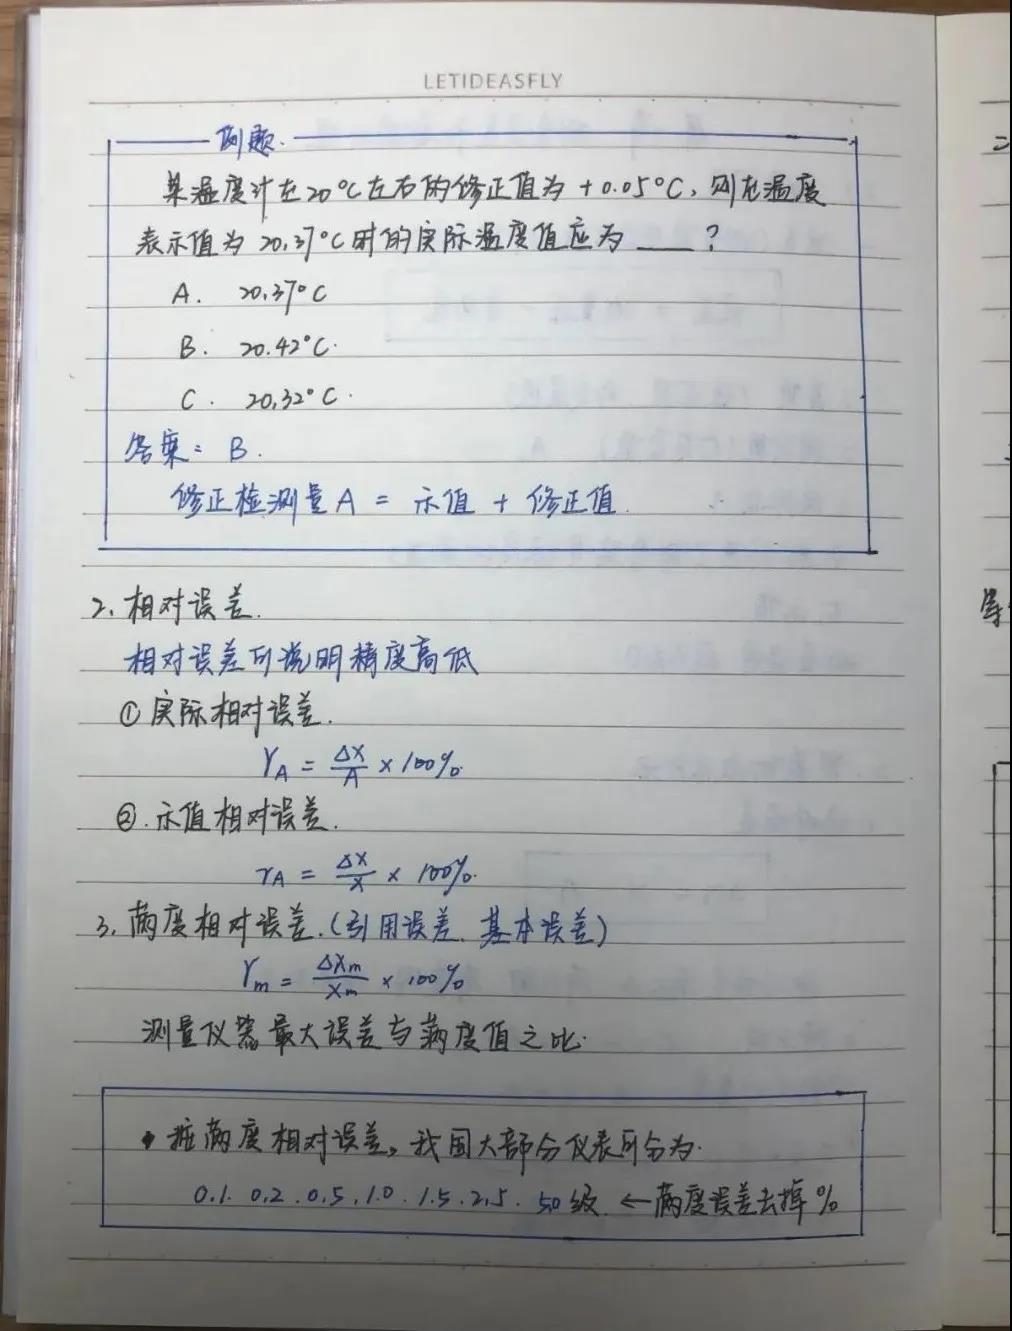 LETIDEASFLY
例题.
某温度计在20°C左右的修正值为+0.05°C,则在温度
表示值为20.37°C时的实际温度值应为____?
A. 20.37°C
B. 20.42°C.
C. 20.32°C.
答案: B.
修正检测量A = 示值 + 修正值.
2. 相对误差.
相对误差可说明精度高低
① 实际相对误差.
γA = ΔX/A × 100%
②. 示值相对误差.
γA = ΔX/X × 100%.
3. 满度相对误差.(引用误差、基本误差)
γm = ΔXm/Xm × 100%
测量仪器最大误差与满度值之比.
满度相对误差,我国大部分仪表可分为.
0.1. 0.2. 0.5. 1.0. 1.5. 2.5. 5.0级. ← 满度误差去掉%